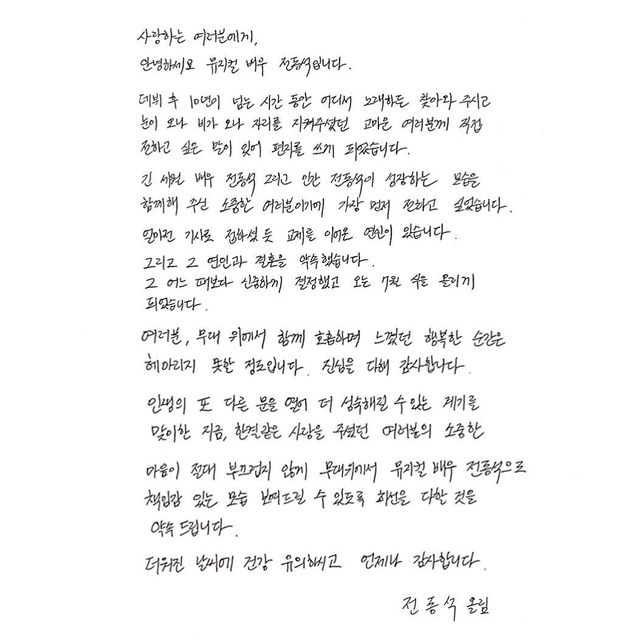 사랑하는 여러분에게,
안녕하세요 뮤지컬 배우 전동석입니다.
데뷔 후 10년이 넘는 시간 동안 어디서 노래하든 찾아와 주시고
눈이 오나 비가 오나 자리를 지켜주셨던 고마운 여러분께 직접
전하고 싶은 말이 있어 편지를 쓰게 되었습니다.
긴 세월 배우 전동석 그리고 인간 전동석이 성장하는 모습을
함께해 주신 소중한 여러분이기에 가장 먼저 전하고 싶었습니다.
얼마전 기사로 접하셨듯 교제를 이어온 연인이 있습니다.
그리고 그 연인과 결혼을 약속했습니다.
그 어느 때보다 신중하게 결정했고 오는 7월 식을 올리게
되었습니다.
여러분, 무대 위에서 함께 호흡하며 느꼈던 행복한 순간은
헤아리지 못할 정도입니다. 진심을 다해 감사합니다.
인생의 또 다른 문을 열어 더 성숙해질 수 있는 계기를
맞이한 지금, 한결같은 사랑을 주셨던 여러분의 소중한
마음이 절대 부끄럽지 않게 무대위에서 뮤지컬 배우 전동석으로
책임감 있는 모습 보여드릴 수 있도록 최선을 다할 것을
약속 드립니다.
더워진 날씨에 건강 유의하시고 언제나 감사합니다.
전동석 올림